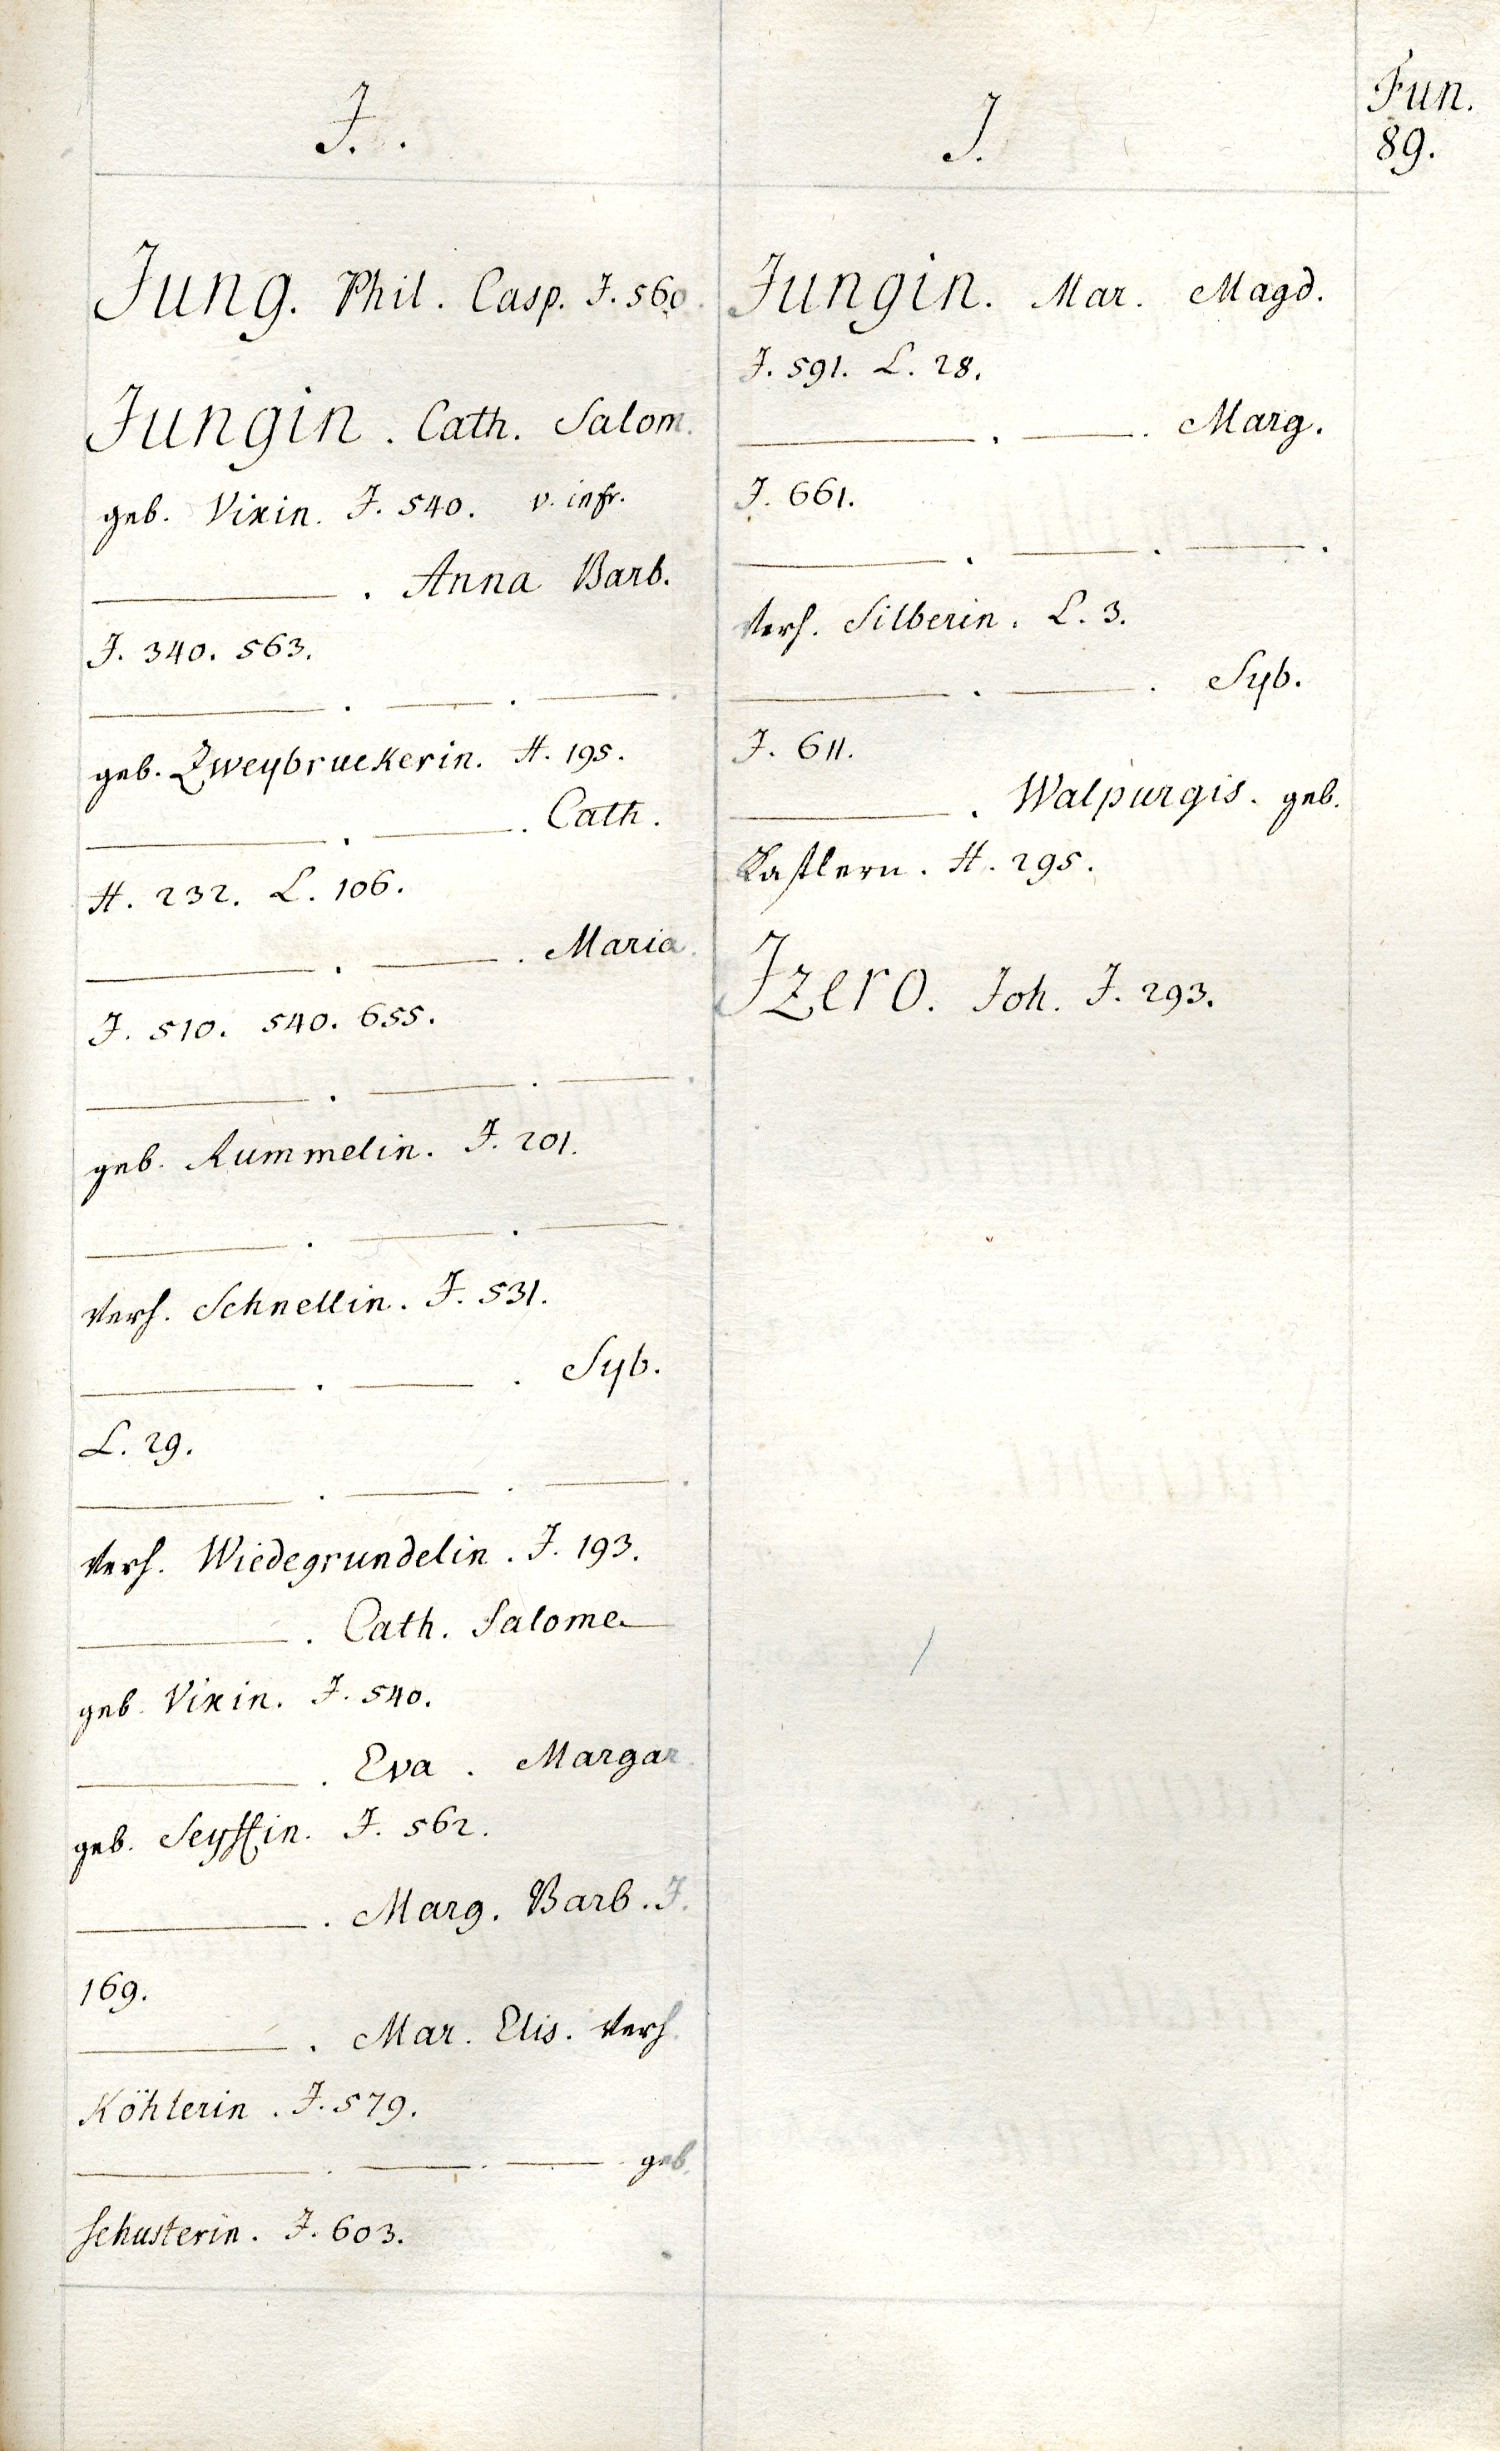 J.
J.
Fun.
89.
Jung. Phil. Casp. J. 560.
Jungin. Cath. Salom.
geb. Vixin. J. 540. v. infr.
———. Anna Barb.
J. 340. 563.
———. ———. ———.
geb. Zweybruckerin. H. 195.
———. ———. Cath.
H. 232. L. 106.
———. ———. Maria.
J. 510. 540. 655.
———. ———. ———.
geb. Rummelin. J. 201.
———. ———. ———.
verh. Schnellin. J. 531.
———. ———. Syb.
L. 29.
———. ———. ———.
verh. Wiedegrundelin. J. 193.
———. Cath. Salome
geb. Vixin. J. 540.
———. Eva. Margar.
geb. Seyffin. J. 562.
———. Marg. Barb. J.
169.
———. Mar. Elis. verh.
Köhlerin. J. 579.
———. ———. ———. geb.
Schusterin. J. 603.
Jungin. Mar. Magd.
J. 591. L. 28.
———. ———. Marg.
J. 661.
———. ———. ———.
verh. Silberin. L. 3.
———. ———. Syb.
J. 611.
———. Walpurgis. geb.
Kastlern. H. 295.
Jzero. Joh. J. 293.